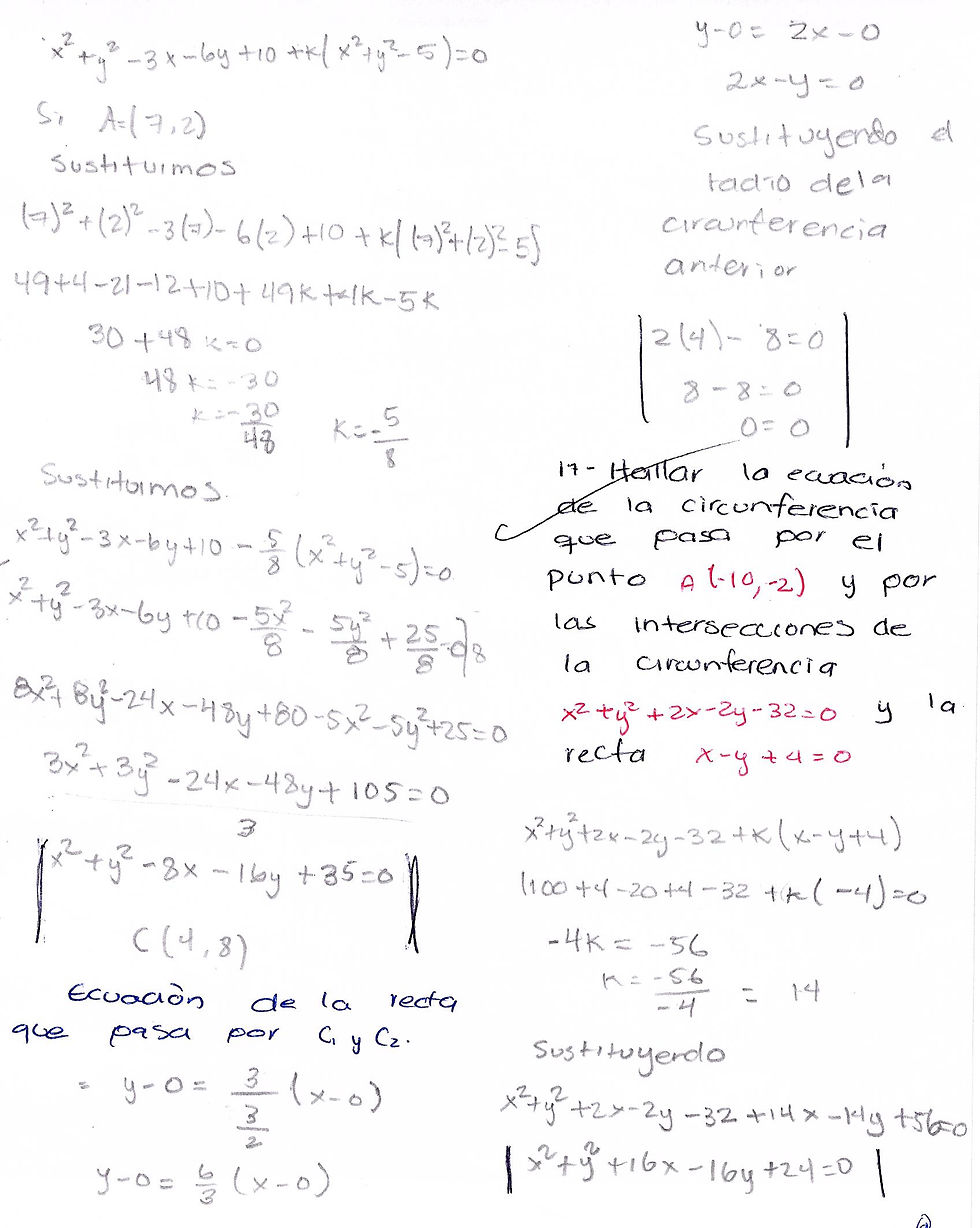 x²+y²-3x-6y+10+k(x²+y²-5)=0
Si A=(7,2)
Sustituimos
(7)²+(2)²-3(7)-6(2)+10+k[(7)²+(2)²-5]
49+4-21-12+10+49k+4k-5k
30+48k=0
48k=-30
k=-30/48 k=-5/8
Sustituimos.
x²+y²-3x-6y+10-5/8(x²+y²-5)=0
x²+y²-3x-6y+10-5x²/8-5y²/8+25/8=0]8
8x²+8y²-24x-48y+80-5x²-5y²+25=0
3x²+3y²-24x-48y+105=0
3
x²+y²-8x-16y+35=0
C(4,8)
Ecuación de la recta
que pasa por C₁ y C₂.
= y-0=3/(3/2)(x-0)
y-0=6/3(x-0)
y-0=2x-0
2x-y=0
Sustituyendo el
radio de la
circunferencia
anterior
2(4)-8=0
8-8=0
0=0
17- Hallar la ecuación
de la circunferencia
que pasa por el
punto A(-10,-2) y por
las intersecciones de
la circunferencia
x²+y²+2x-2y-32=0 y la
recta x-y+4=0
x²+y²+2x-2y-32+k(x-y+4)
(100+4-20+4-32+k(-4)=0
-4k=-56
k=-56/-4=14
Sustituyendo
x²+y²+2x-2y-32+14x-14y+56=0
x²+y²+16x-16y+24=0